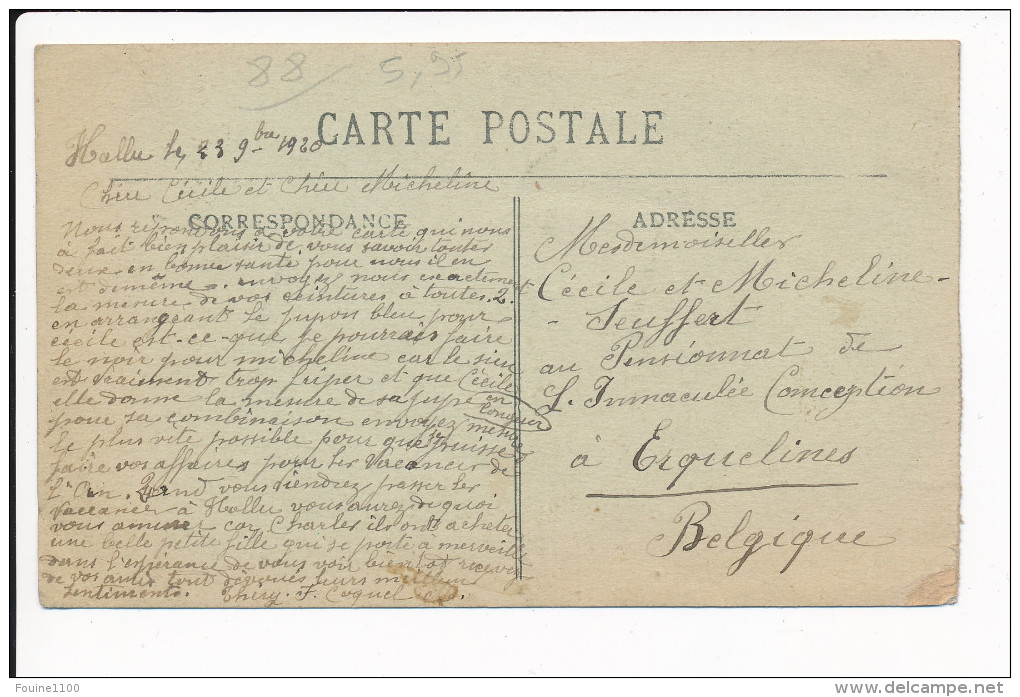 88 5,95
CARTE POSTALE
Hallu le, 23 9bre 1920
Chère Cécile et Chère Micheline
CORRESPONDANCE
Nous répondons à votre carte qui nous
à fait bien plaisir de vous savoir toutes
deux en bonne santé pour nous il en
est demême. envoyez nous exactement
la mesure de vos ceintures à toutes. 2. et
en arrangeant le jupon bleu pour
cécile est-ce-que je pourrais faire
le noir pour micheline car le sien
est vraiement trop friper et que Cécile
elle donne la mesure de sa jupe en longueur
pour sa combinaison envoyez mesures
le plus vite possible pour que je puisse
faire vos affaires pour les vacances de
l'An. Quand vous viendrez passer les
vaccances à Hallu vous aurez de quoi
vous amuser car Charles ils ont acheter
une belle petite fille qui se porte à merveille
dans l'espérance de vous voir bientot recevez
de vos amis tout dévoués leurs meilleurs
sentiments. Thiry. F. Coquel
ADRESSE
Mesdemoiselles
Cécile et Micheline-
- Teuffert
au Pensionnat de
L. Immaculée Conception
à Erquelines
Belgique
Foune1100
www.delcampe.net